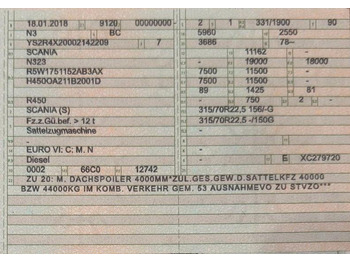 18.01.2018 9120 00000000 - 2 1 331/1900 90
N3 BC 5960 2550
YS2R4X20002142209 7 3686 78--
SCANIA 11162 -
N323 - 19000 18000
R5W1751152AB3AX 7500 11500 -
H450OA211B2001D 7500 11500 -
89 1425 81
R450 - 750 2 -
SCANIA (S) 315/70R22,5 156/-G
Fz.z.Gü.bef. > 12 t 315/70R22,5 -/150G
Sattelzugmaschine -
- -
EURO VI; C; M, N -
Diesel - E XC279720
0002 66C0 12742
ZU 20: M. DACHSPOILER 4000MM*ZUL.GES.GEW.D.SATTELKFZ 40000
BZW 44000KG IM KOMB. VERKEHR GEM. 53 AUSNAHMEVO ZU STVZO***